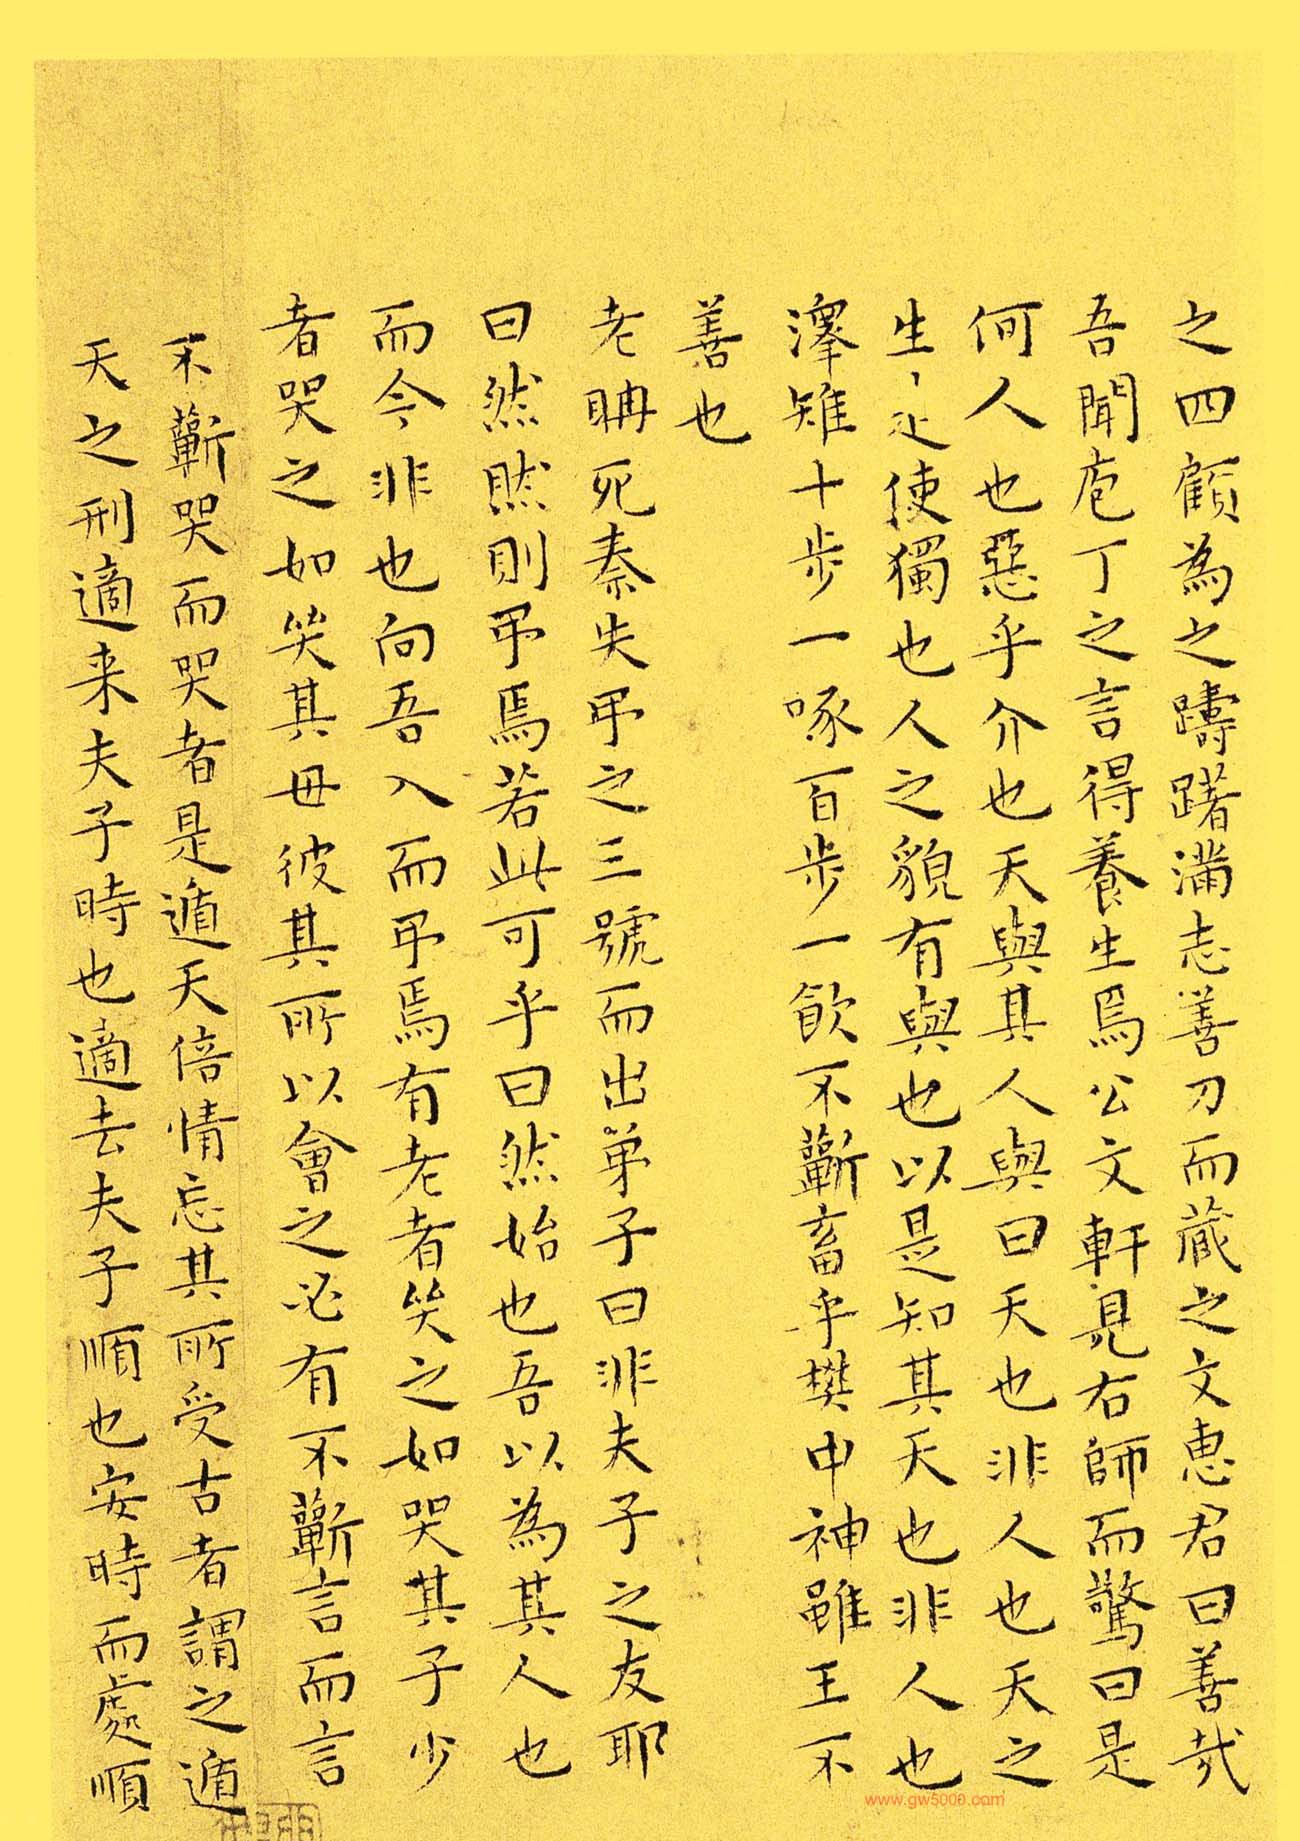 之四顧為之躊躇滿志善刀而藏之文惠君曰善哉
吾聞庖丁之言得養生焉公文軒見右師而驚曰是
何人也惡乎介也天與其人與曰天也非人也天之
生、是使獨也人之貌有與也以是知其天也非人也
澤雉十步一啄百步一飲不蘄畜乎樊中神雖王不
善也
老聃死秦失弔之三號而出弟子曰非夫子之友耶
曰然然則弔焉若此可乎曰然始也吾以為其人也
而今非也向吾入而弔焉有老者哭之如哭其子少
者哭之如哭其母彼其所以會之必有不蘄言而言
不蘄哭而哭者是遁天倍情忘其所受古者謂之遁
天之刑適来夫子時也適去夫子順也安時而處順
www.gw5000.com